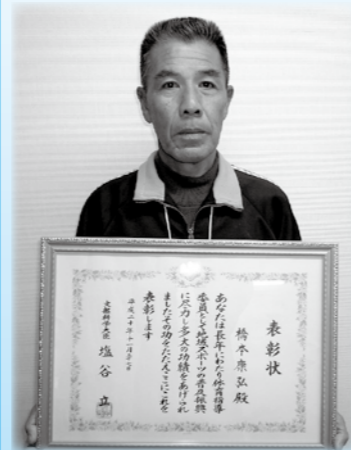 表彰状
橋本康弘殿
あなたは長年にわたり体育指導
委員として地域スポーツの普及振興
に尽力し多大の功績をあげられ
ましたその功をたたえてここにこれを
表彰します
平成二十年十一月十七日
文部科学大臣 塩谷立